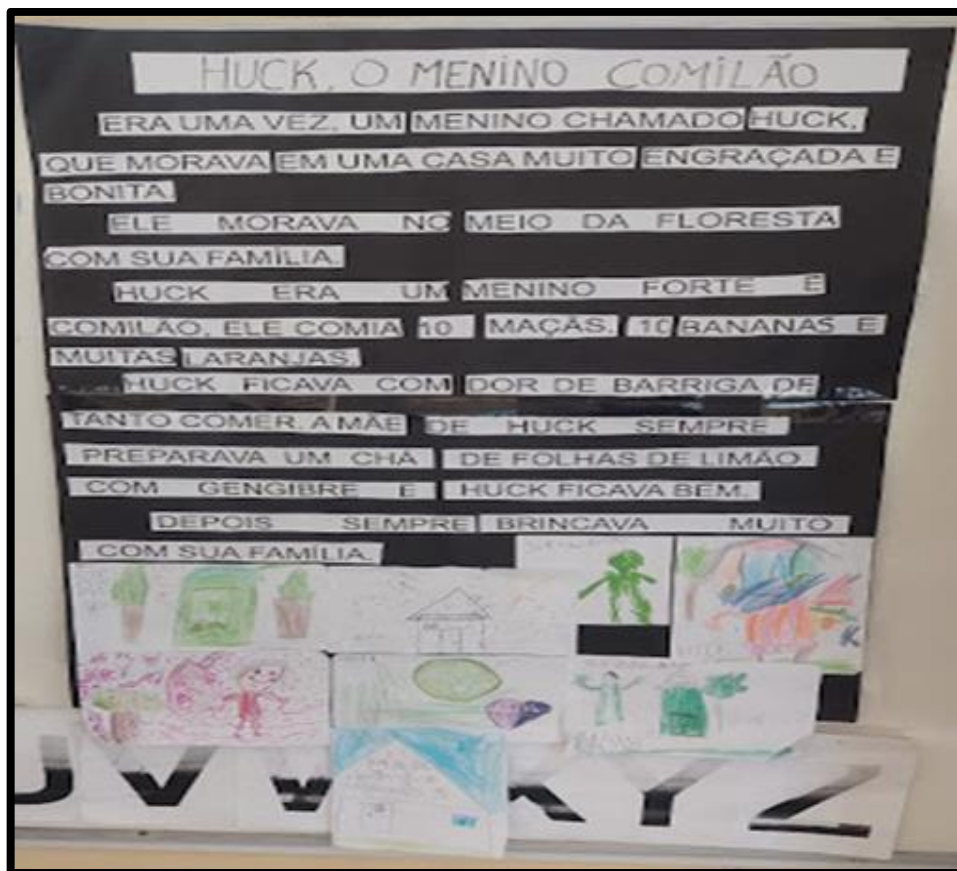 HUCK, O MENINO COMILÃO
ERA UMA VEZ, UM MENINO CHAMADO HUCK,
QUE MORAVA EM UMA CASA MUITO ENGRAÇADA E
BONITA.
ELE MORAVA NO MEIO DA FLORESTA
COM SUA FAMÍLIA.
HUCK ERA UM MENINO FORTE E
COMILÃO, ELE COMIA 10 MAÇÃS, 10 BANANAS E
MUITAS LARANJAS.
HUCK FICAVA COM DOR DE BARRIGA DE
TANTO COMER. A MÃE DE HUCK SEMPRE
PREPARAVA UM CHÁ DE FOLHAS DE LIMÃO
COM GENGIBRE E HUCK FICAVA BEM.
DEPOIS SEMPRE BRINCAVA MUITO
COM SUA FAMÍLIA.
U V W X Y Z